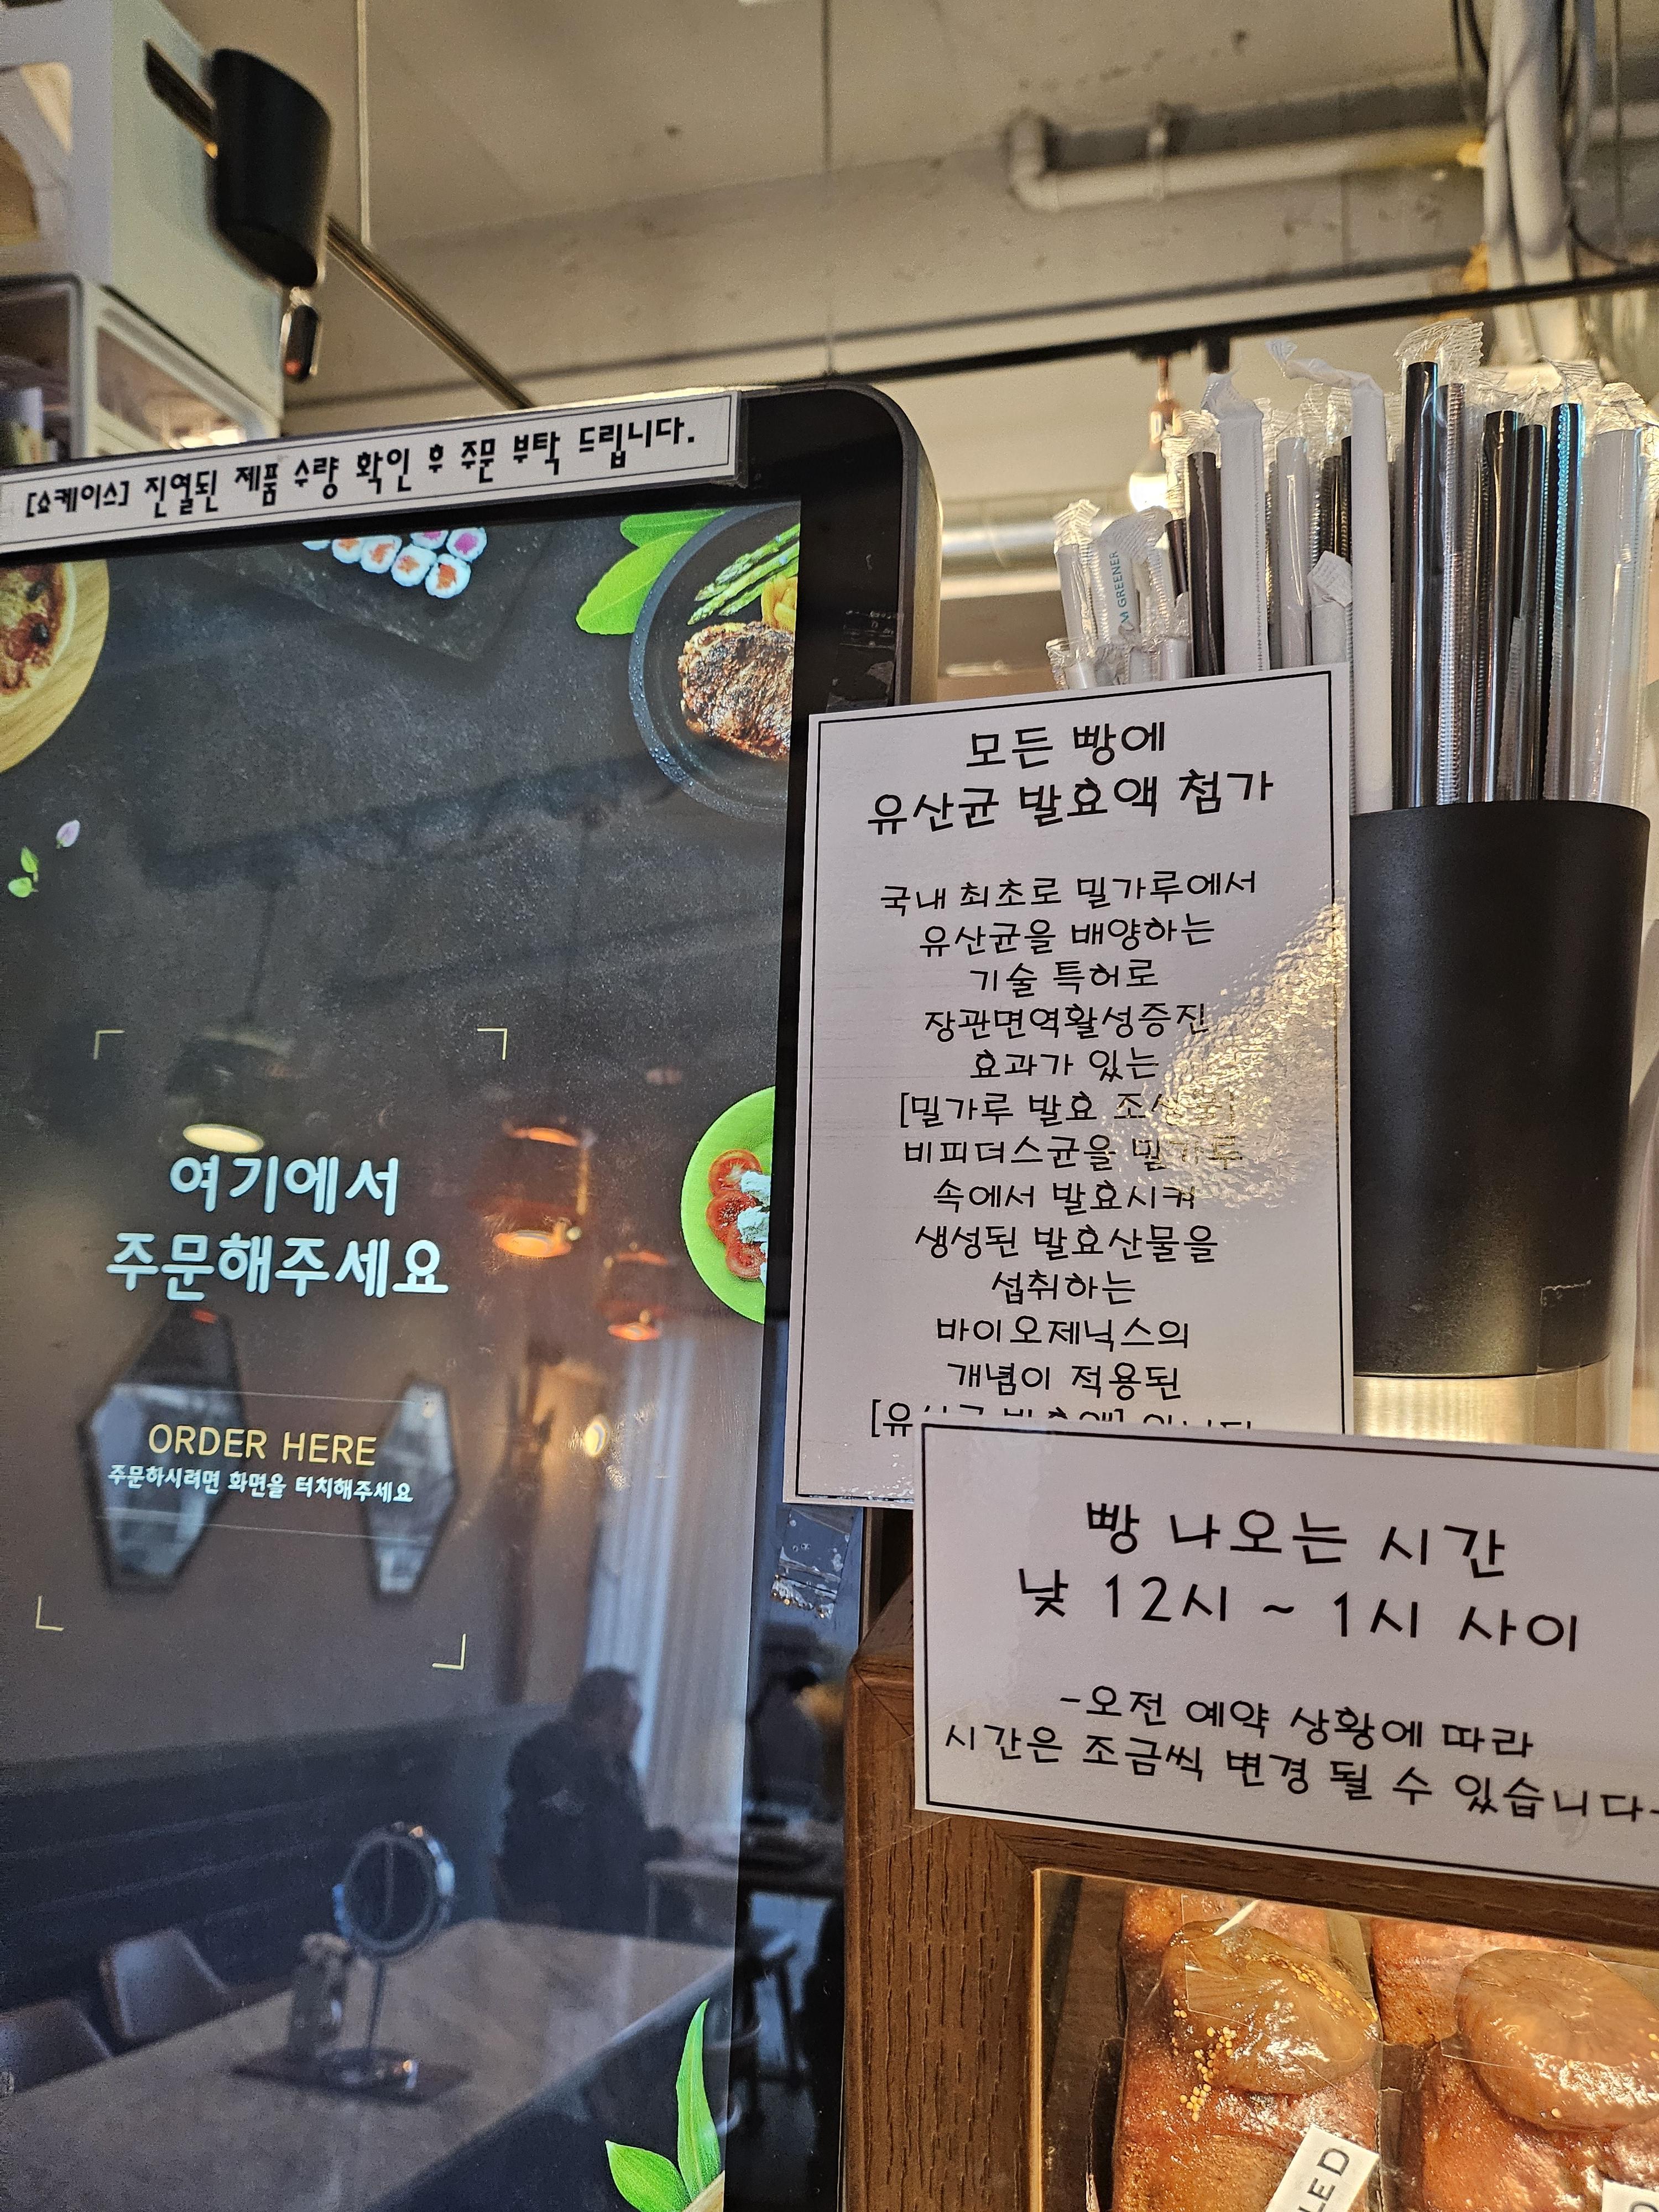 [쇼케이스] 진열된 제품 수량 확인 후 주문 부탁 드립니다.
여기에서
주문해주세요
ORDER HERE
주문하시려면 화면을 터치해주세요
GREENER
모든 빵에
유산균 발효액 첨가
국내 최초로 밀가루에서
유산균을 배양하는
기술 특허로
장관면역활성증진
효과가 있는
[밀가루 발효
비피더스균을 밀가루
속에서 발효시켜
생성된 발효산물을
섭취하는
바이오제닉스의
개념이 적용된
빵 나오는 시간
낮 12시 ~ 1시 사이
-오전 예약 상황에 따라
시간은 조금씩 변경 될 수 있습니다-